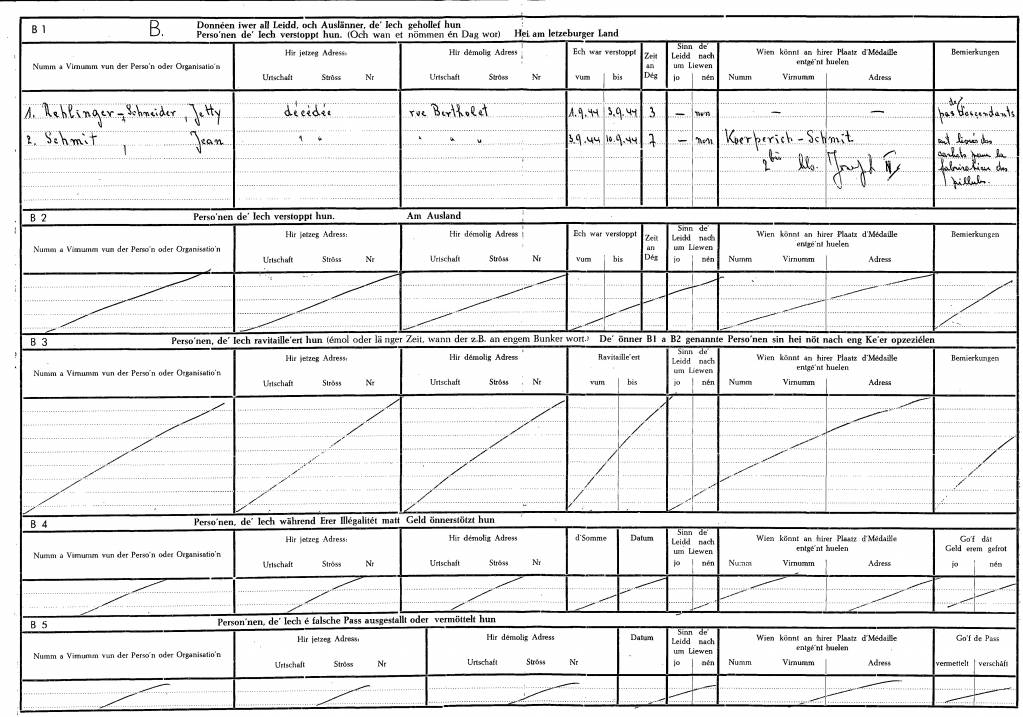 B 1
B.
Donnéen iwer all Leidd, och Auslänner, de' Iech gehollef hun
Perso'nen de' Iech verstoppt hun. (Och wan et nömmen én Dag wor) Hei am letzeburger Land
Numm a Virnumm vun der Perso'n oder Organisatio'n
Hir jetzeg Adress:
Urtschaft Ströss Nr
Hir démolig Adress
Urtschaft Ströss Nr
Ech war verstoppt
vum bis
Zeit an Dég
Sinn de' Leidd nach um Liewen
jo nén
Wien könnt an hirer Plaatz d'Médaille entgé'nt huelen
Numm Virnumm Adress
Bemierkungen
1. Rehlinger - Schneider, Jetty décédée rue Bertholet 1.9.44 3.9.44 3 — non — — pas de descendants
2. Schmit, Jean " " " " " 3.9.44 10.9.44 7 — non Koerperich-Schmit
2bis Joseph II
ont des
pour la
fabrication des
pillules.
B 2
Perso'nen de' Iech verstoppt hun. Am Ausland
Numm a Virnumm vun der Perso'n oder Organisatio'n
Hir jetzeg Adress:
Urtschaft Ströss Nr
Hir démolig Adress
Urtschaft Ströss Nr
Ech war verstoppt
vum bis
Zeit an Dég
Sinn de' Leidd nach um Liewen
jo nén
Wien könnt an hirer Plaatz d'Médaille entgé'nt huelen
Numm Virnumm Adress
Bemierkungen
B 3
Perso'nen, de' Iech ravitaille'ert hun (émol oder länger Zeit, wann der z.B. an engem Bunker wort.) De' önner B1 a B2 genannte Perso'nen sin hei nöt nach eng Ke'er opzeziélen
Numm a Virnumm vun der Perso'n oder Organisatio'n
Hir jetzeg Adress:
Urtschaft Ströss Nr
Hir démolig Adress
Urtschaft Ströss Nr
Ravitaille'ert
vum bis
Sinn de' Leidd nach um Liewen
jo nén
Wien könnt an hirer Plaatz d'Médaille entgé'nt huelen
Numm Virnumm Adress
Bemierkungen
B 4
Perso'nen, de' Iech während Erer Illégalitét matt Geld önnerstötzt hun
Numm a Virnumm vun der Perso'n oder Organisatio'n
Hir jetzeg Adress:
Urtschaft Ströss Nr
Hir démolig Adress
Urtschaft Ströss Nr
d'Somme
Datum
Sinn de' Leidd nach um Liewen
jo nén
Wien könnt an hirer Plaatz d'Médaille entgé'nt huelen
Numm Virnumm Adress
Go'f dât Geld erem gefrot
jo nén
B 5
Person'nen, de' Iech é falsche Pass ausgestallt oder vermöttelt hun
Numm a Virnumm vun der Perso'n oder Organisatio'n
Hir jetzeg Adress:
Urtschaft Ströss Nr
Hir démolig Adress
Urtschaft Ströss Nr
Datum
Sinn de' Leidd nach um Liewen
jo nén
Wien könnt an hirer Plaatz d'Médaille entgé'nt huelen
Numm Virnumm Adress
Go'f de Pass
vermettelt verschâft